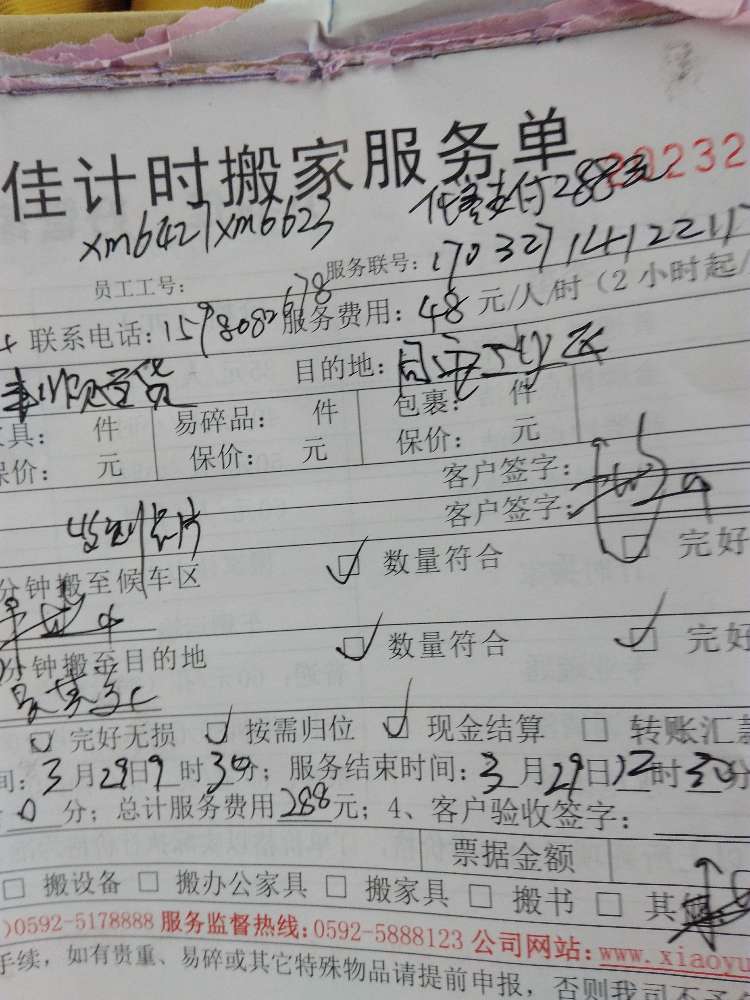 佳计时搬家服务单 20232
xm6427 xm6623 代 支付288元
员工工号: 服务联号: 170327141221
联系电话: 服务费用: 48 元/人/时 (2 小时起/
目的地: 同安
具: 件 易碎品: 件 包裹: 件
保价: 元 保价: 元 保价: 元
客户签字:
客户签字:
分钟搬至候车区 数量符合 完好
分钟搬至目的地 数量符合 完好
完好无损 按需归位 现金结算 转账汇款
间: 3 月 29 日 9 时 30 分; 服务结束时间: 3 月 29 日 12 时 30 分
0 分; 总计服务费用 288 元; 4、客户验收签字:
票据金额
搬设备 搬办公家具 搬家具 搬书 其他
)0592-5178888 服务监督热线:0592-5888123 公司网站:www.xiaoyu
手续, 如有贵重、易碎或其它特殊物品请提前申报, 否则我司不